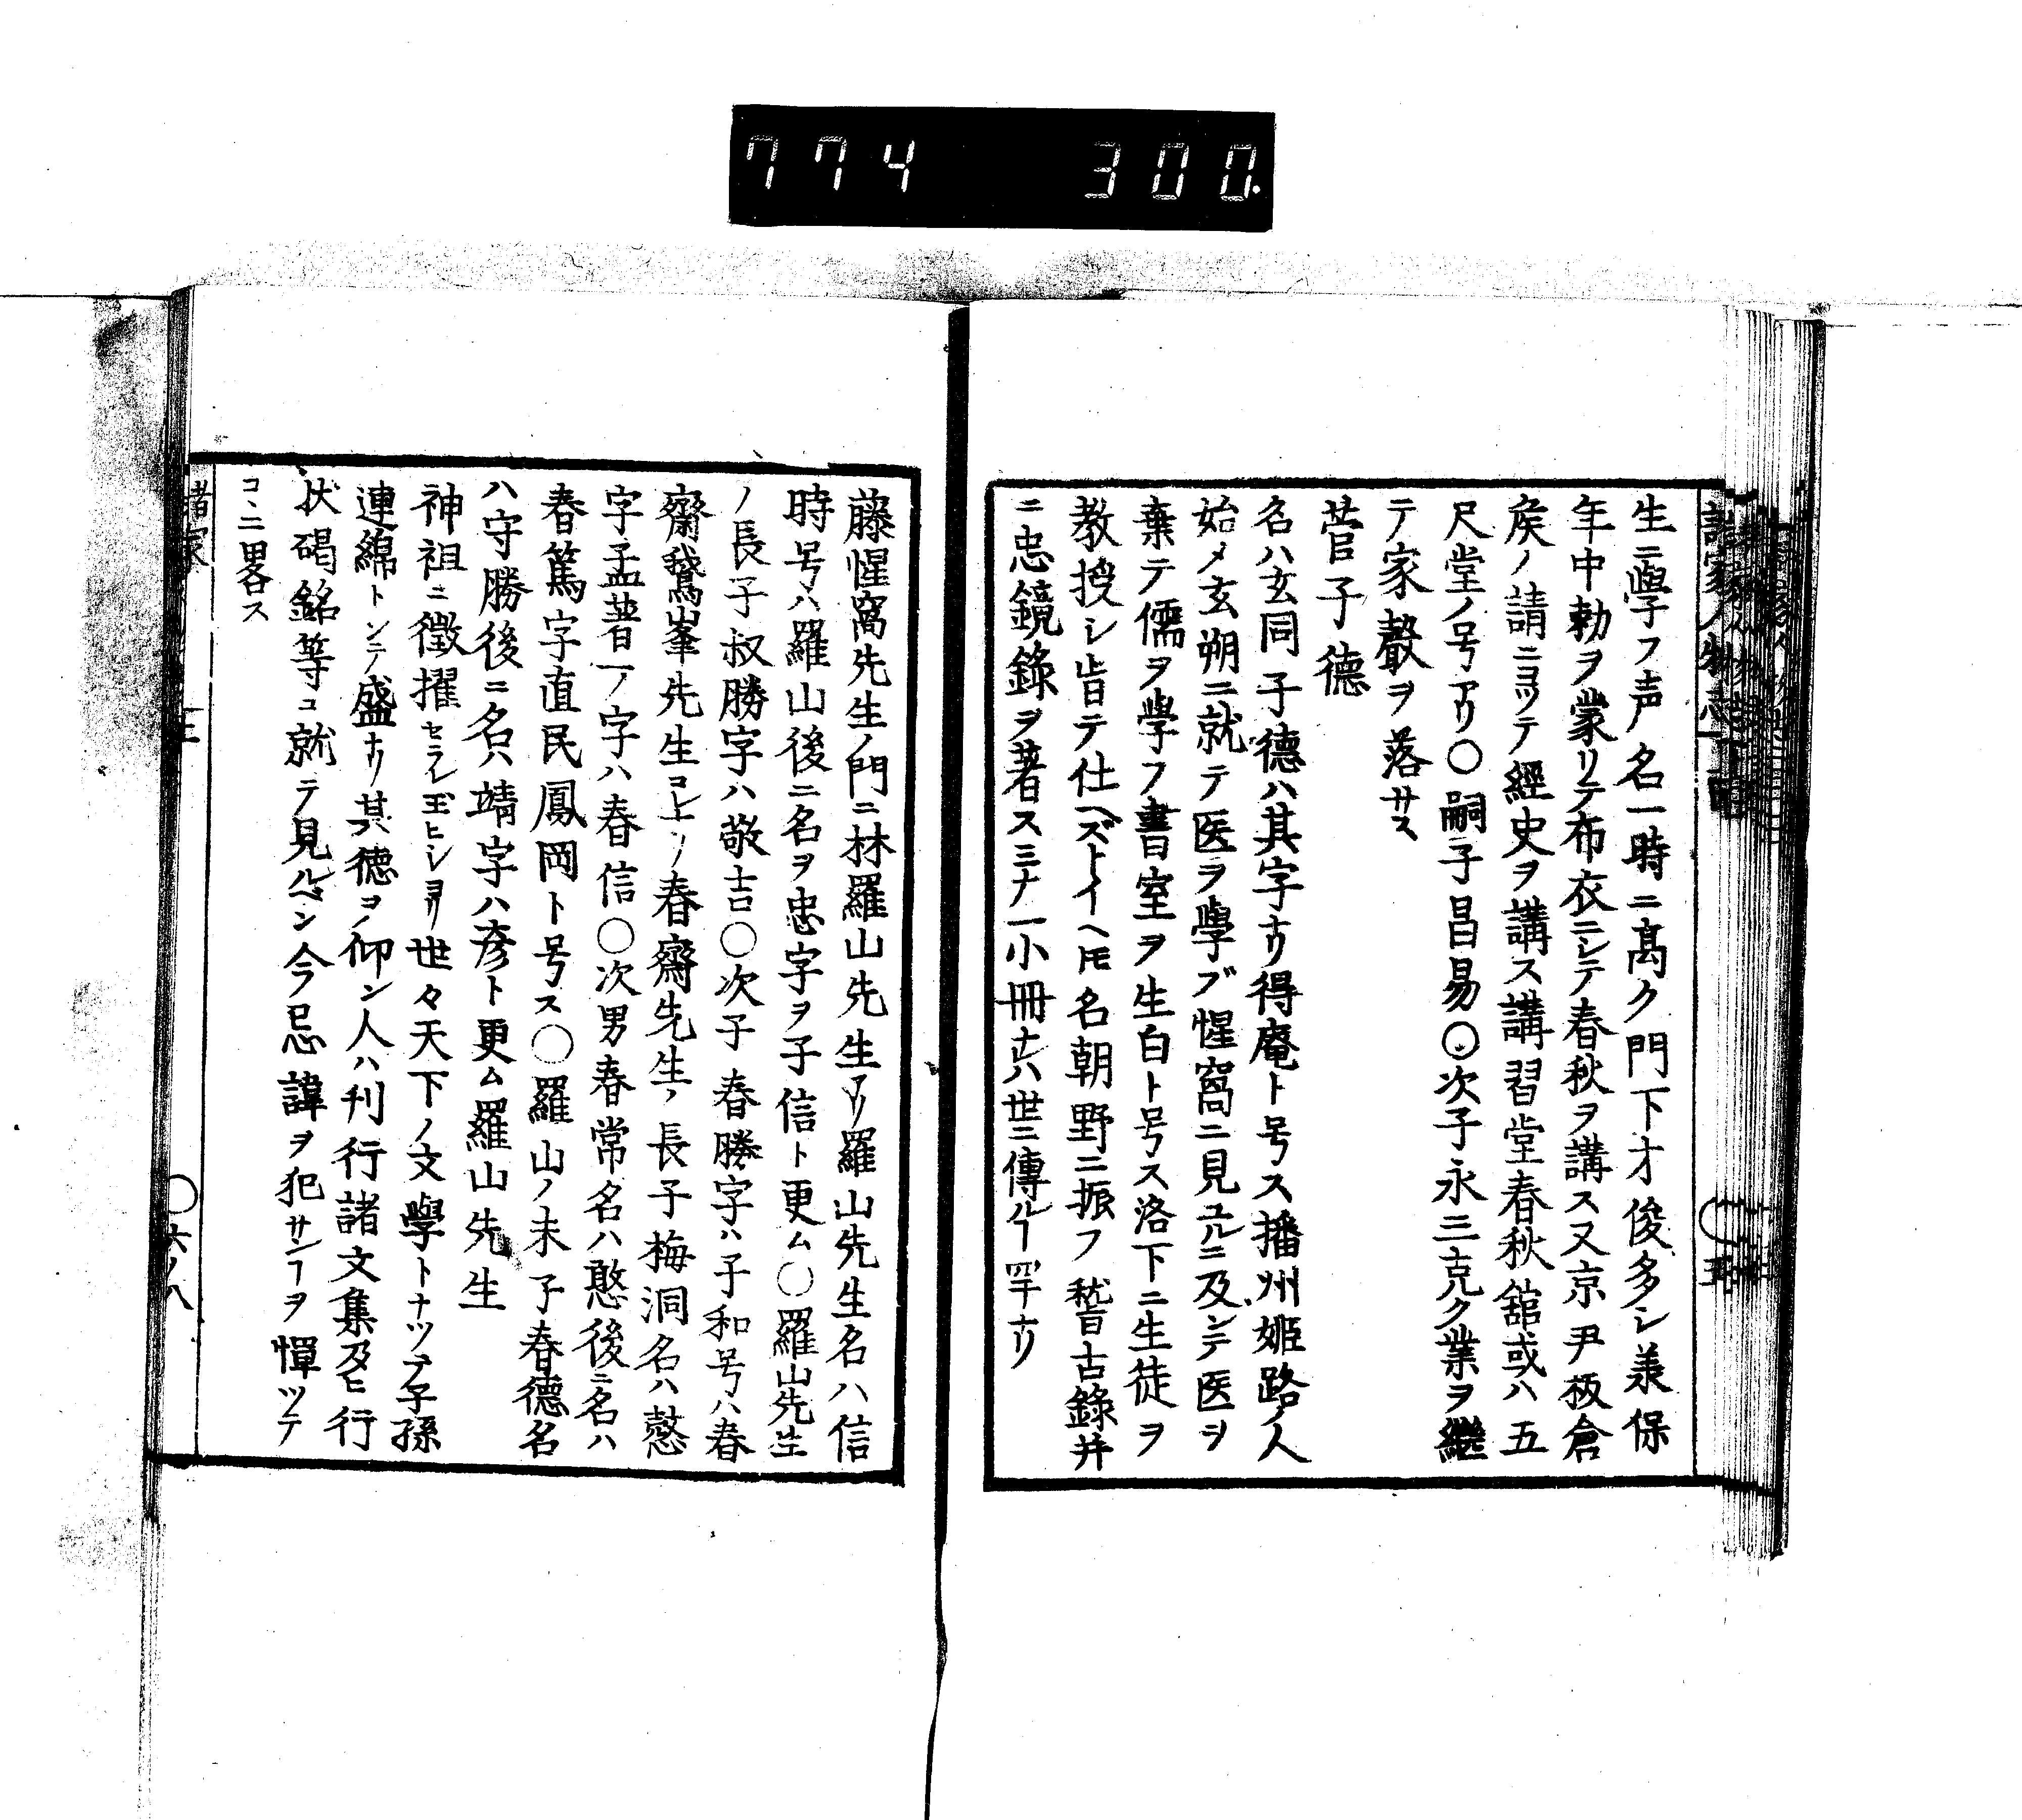 774 300.
生ニ學フ声名一時ニ高ク門下才俊多シ羕保
年中勅ヲ蒙リテ布衣ニシテ春秋ヲ講ス又京尹板倉
矦ノ請ニヨツテ經史ヲ講ス講習堂春秋舘或ハ五
尺堂ノ号アリ〇嗣子昌易〇次子永三克ク業ヲ繼
テ家聲ヲ落サス
菅子德
名ハ玄同子德ハ其字ナリ得庵ト号ス播州姬路ノ人
始メ玄朔ニ就テ医ヲ學ブ惺窩ニ見ユルニ及ンテ医ヲ
棄テ儒ヲ學フ書室ヲ生白ト号ス洛下ニ生徒ヲ
教授シ肯テ仕ヘズトイヘ𪜈名朝野ニ振フ稽古錄并
ニ忠鏡錄ヲ著スミナ一小冊ナレハ世ニ傳ルヿ罕ナリ
藤惺窩先生ノ門ニ林羅山先生アリ羅山先生名ハ信
時号ハ羅山後ニ名ヲ忠字ヲ子信ト更ム〇羅山先生
ノ長子叔勝字ハ敬吉〇次子春勝字ハ子和号ハ春
齋鵞峯先生コレ上ノ春齋先生ノ長子梅洞名ハ愨
字孟著一ノ字ハ春信〇次男春常名ハ憨後ニ名ハ
春篤字直民鳳岡ト号ス〇羅山ノ末子春德名
ハ守勝後ニ名ハ靖字ハ彥ト更ム羅山先生
神祖ニ徵擢セラレ玉ヒシヨリ世々天下ノ文學トナツテ子孫
連綿トシテ盛ナリ其德ヲ仰ン人ハ刊行諸文集及ヒ行
状碣銘等ニ就テ見ルベシ今忌諱ヲ犯サンヿヲ憚ツテ
コヽニ畧ス
〇六ノ八